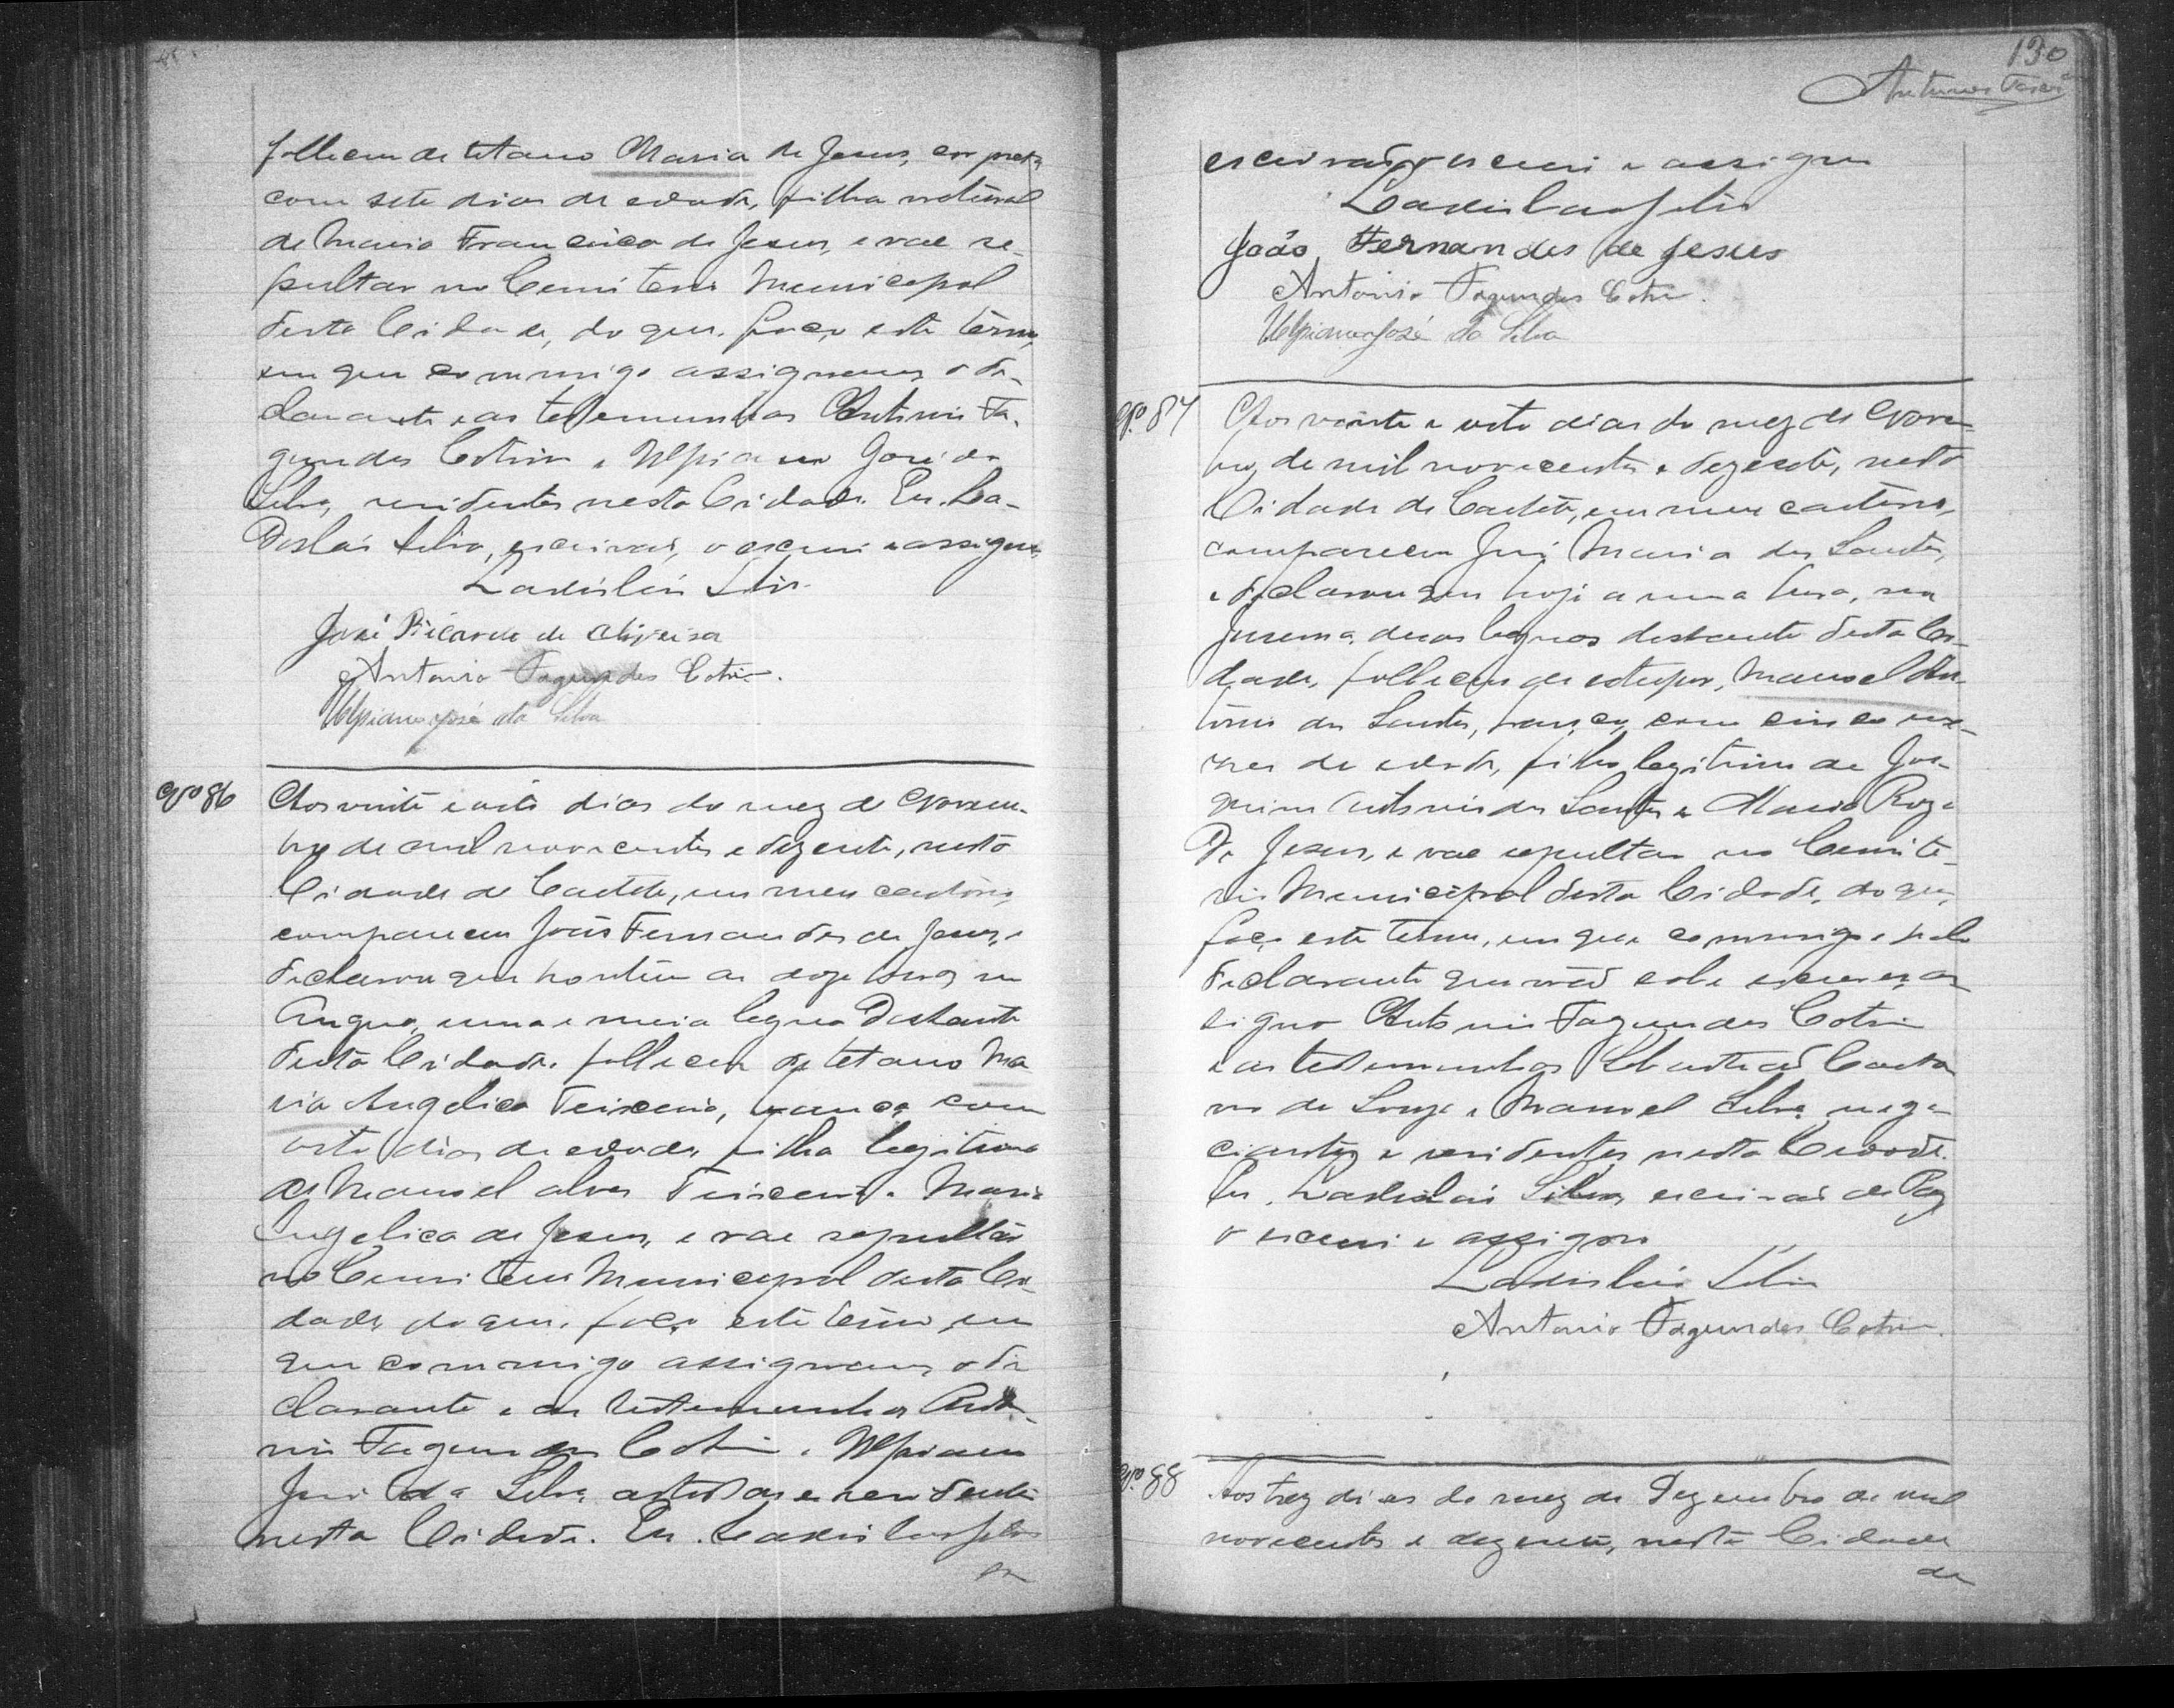 falleceu de tetano Maria de Jesus, cor preta,
com sete dias de edade, filha natural
de Maria Francisca de Jesus, e vae se-
pultar no Cemiterio Municipal
desta Cidade, do que faço este termo,
em que commigo assignam, o de-
clarante e as testemunhas Antonio Fa-
gundes Cotrim e Ulpiano José da
Silva, residentes nesta Cidade. Eu, La-
dislau Silva, escrivão, o escrevi e assigno,
Ladislau Silva
José Ricardo de Oliveira
Antonio Fagundes Cotrim.
Ulpiano José da Silva
Nº 86
Aos vinte e oito dias do mez de Novem-
bro de mil novecentos e dezesete, nesta
Cidade de Caeteté, em meu cartorio,
compareceu João Fernandes de Jesus, e
declarou que hontem as doze horas, em
uma e meia legua distante
desta Cidade, falleceu de tetano Ma
ria Angelica Teixeira, branca, com
oito dias de edade, filha legitima
de Manoel Alves Teixeira e Maria
Angelica de Jesus, e vae sepultar
no Cemiterio Municipal desta Ci-
dade, do que, faço este termo em
que commigo assignam, o de
clarante e as testemunhas Anto-
nio Fagundes Cotrim e Ulpiano
José da Silva, artistas e residentes
nesta Cidade. Eu, Ladislau Silva
130
Antunes
escrivão, o escrevi e assigno
Ladislau Silva
João Fernandes de Jesus
Antonio Fagundes Cotrim.
Ulpiano José da Silva
Nº 87
Aos vinte e oito dias do mez de Novem-
bro, de mil novecentos e dezesete, nesta
Cidade de Caeteté, em meu cartorio,
compareceu José Maria dos Santos,
e declarou que hoje a uma hora, na
Jurema, duas leguas distante desta Ci-
dade, falleceu de estupor, Manoel An-
tonio dos Santos, branco, com cinco me-
zes de edade, filho legitimo de Joa-
quim Antonio dos Santos e Maria Roza
de Jesus, e vae sepultar no Cemite-
rio Municipal desta Cidade, do que,
faço este termo, em que commigo e pelo
declarante que não sabe escrever, as
signo Antonio Fagundes Cotrim
e as testemunhas Sebastião Caeta
no de Souza e Manoel Silva, nego-
ciantes e residentes nesta Cidade.
Eu, Ladislau Silva, escrivão de Paz
o escrevi e assigno
Ladislau Silva
Antonio Fagundes Cotrim.
Nº 88
Aos trez dias do mez de Dezembro de mil
novecentos e dezesete, nesta Cidade
de